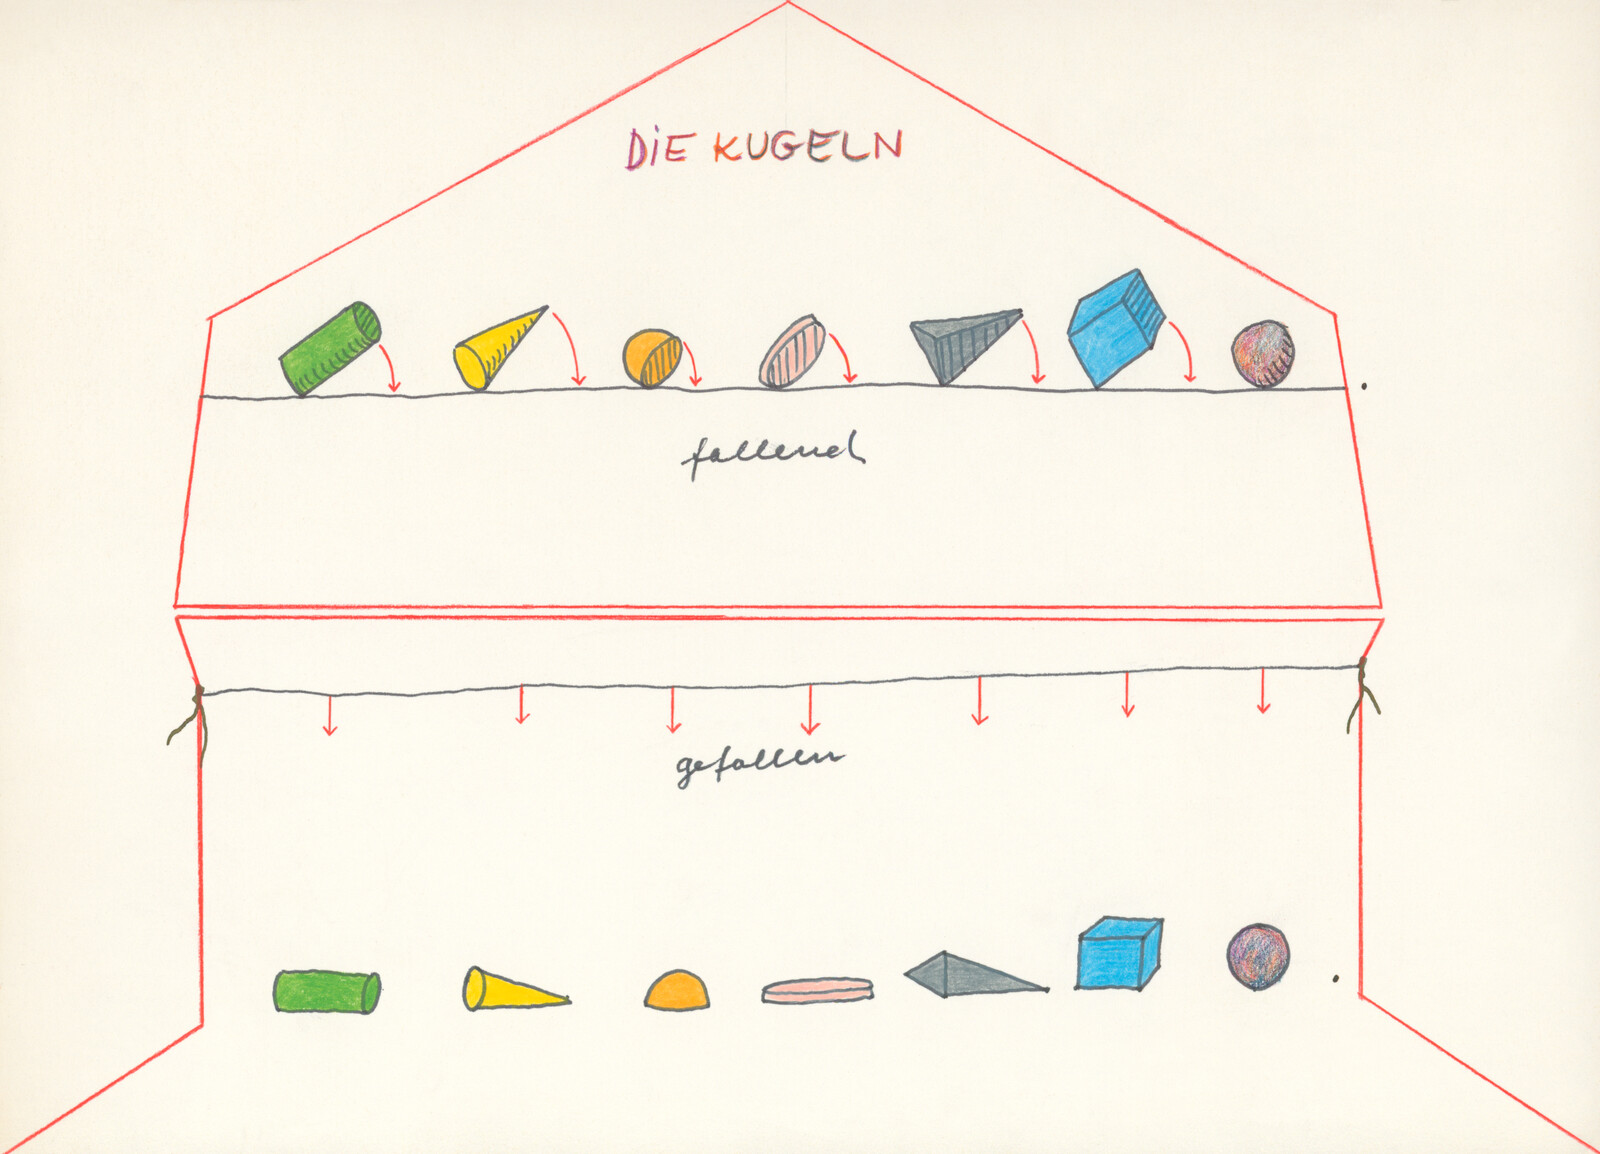 DiE KUGELN
fallend
gefallen